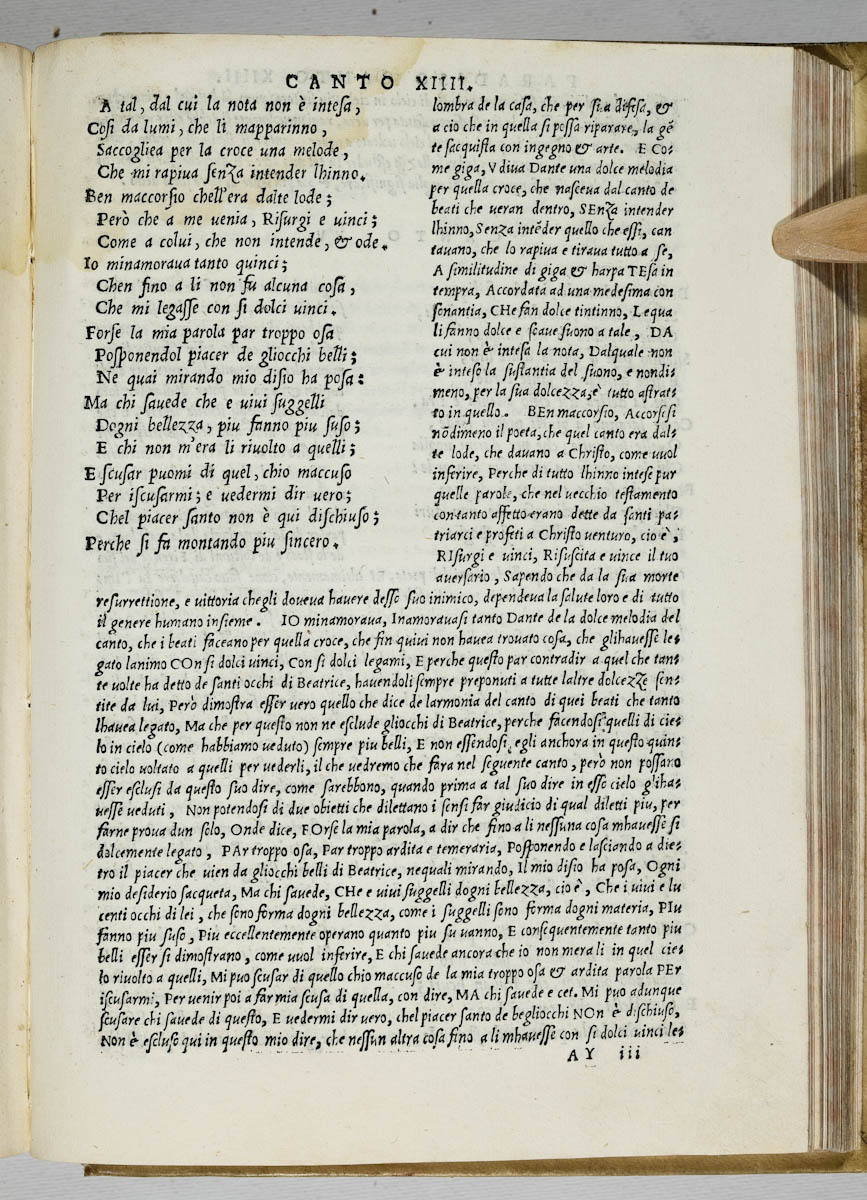 CANTO XIIII.
A tal, dal cui la nota non è intesa,
Cosi da lumi, che li mapparinno,
Saccogliea per la croce una melode,
Che mi rapiua senza intender lhinno.
Ben maccorsio chell'era dalte lode;
Però che a me uenia, Risurgi e uinci;
Come a colui, che non intende, & ode.
Io minamoraua tanto quinci;
Chen fino a li non fu alcuna cosa,
Che mi legasse con si dolci uinci.
Forse la mia parola par troppo osa
Posponendol piacer de gliocchi belli;
Ne quai mirando mio disio ha posa:
Ma chi sauede che e uiui suggelli
Dogni bellezza, piu fanno piu suso;
E chi non m'era li riuolto a quelli;
E scusar puomi di quel, chio maccuso
Per iscusarmi; e uedermi dir uero;
Chel piacer santo non è qui dischiuso;
Perche si fa montando piu sincero.
lombra de la casa, che per sua difesa, &
a cio che in quella si possa riparare, la gē
te sacquista con ingegno & arte. E Co=
me giga, Vdiua Dante una dolce melodia
per quella croce, che nasceua dal canto de
beati che ueran dentro, SEnza intender
lhinno, Senza intēder quello che essi, can
tauano, che lo rapiua e tiraua tutto a se,
A similitudine di giga & harpa TEsa in
tempra, Accordata ad una medesima con
sonantia, CHe fan dolce tintinno, Lequa
li fanno dolce e soaue suono a tale, DA
cui non è intesa la nota, Dalquale non
è inteso la sustantia del suono, e nondi=
meno, per la sua dolcezza, è tutto astrat=
to in quello. BEn maccorsio, Accorsesi
nōdimeno il poeta, che quel canto era dal=
te lode, che dauano a Christo, come uuol
inferire, Perche di tutto lhinno intese pur
quelle parole, che nel uecchio testamento
con tanto affetto erano dette da santi pa=
triarci e profeti a Christo uenturo, cio è,
RIsurgi e uinci, Risuscita e uince il tuo
auersario, Sapendo che da la sua morte
resurrettione, e uittoria chegli doueua hauere desse suo inimico, dependeua la salute loro e di tutto
il genere humano insieme. IO minamoraua, Inamorauasi tanto Dante de la dolce melodia del
canto, che i beati faceano per quella croce, che fin quiui non hauea trouato cosa, che glihauesse le=
gato lanimo COn si dolci uinci, Con si dolci legami, E perche questo par contradir a quel che tan=
te uolte ha detto de santi occhi di Beatrice, hauendoli sempre preponuti a tutte laltre dolcezze sen=
tite da lui, Però dimostra esser uero quello che dice de larmonia del canto di quei beati che tanto
lhauea legato, Ma che per questo non ne esclude gliocchi di Beatrice, perche facendosi quelli di cie=
lo in cielo (come habbiamo ueduto) sempre piu belli, E non essendosi egli anchora in questo quin=
to cielo uoltato a quelli per uederli, il che uedremo che fara nel seguente canto, però non possano
esser esclusi da questo suo dire, come sarebbono, quando prima a tal suo dire in esse cielo gliha=
uesse ueduti, Non potendosi di due obietti che dilettano i sensi far giudicio di qual diletti piu, per
farne proua dun solo, Onde dice, FOrse la mia parola, a dir che fino a li nessuna cosa mhauesse si
dolcemente legato, PAr troppo osa, Par troppo ardita e temeraria, Posponendo e lasciando a die=
tro il piacer che uien da gliocchi belli di Beatrice, nequali mirando, Il mio disio ha posa, Ogni
mio desiderio sacqueta, Ma chi sauede, CHe e uiui suggelli dogni bellezza, cio è, Che i uiui e lu
centi occhi di lei, che sono forma dogni bellezza, come i suggelli sono forma dogni materia, PIu
fanno piu suso, Piu eccellentemente operano quanto piu su uanno, E consequentemente tanto piu
belli esser si dimostrano, come uuol inferire, E chi sauede ancora che io non mera li in quel cie=
lo riuolto a quelli, Mi puo scusar di quello chio maccuso de la mia troppo osa & ardita parola PEr
iscusarmi, Per uenir poi a far mia scusa di quella, con dire, MA chi sauede e cet. Mi puo adunque
scusare chi sauede di questo, E uedermi dir uero, chel piacer santo de begliocchi NOn è dischiuso,
Non è escluso qui in questo mio dire, che nessun altra cosa fino a li mhauesse con si dolci uinci le=
AY iii